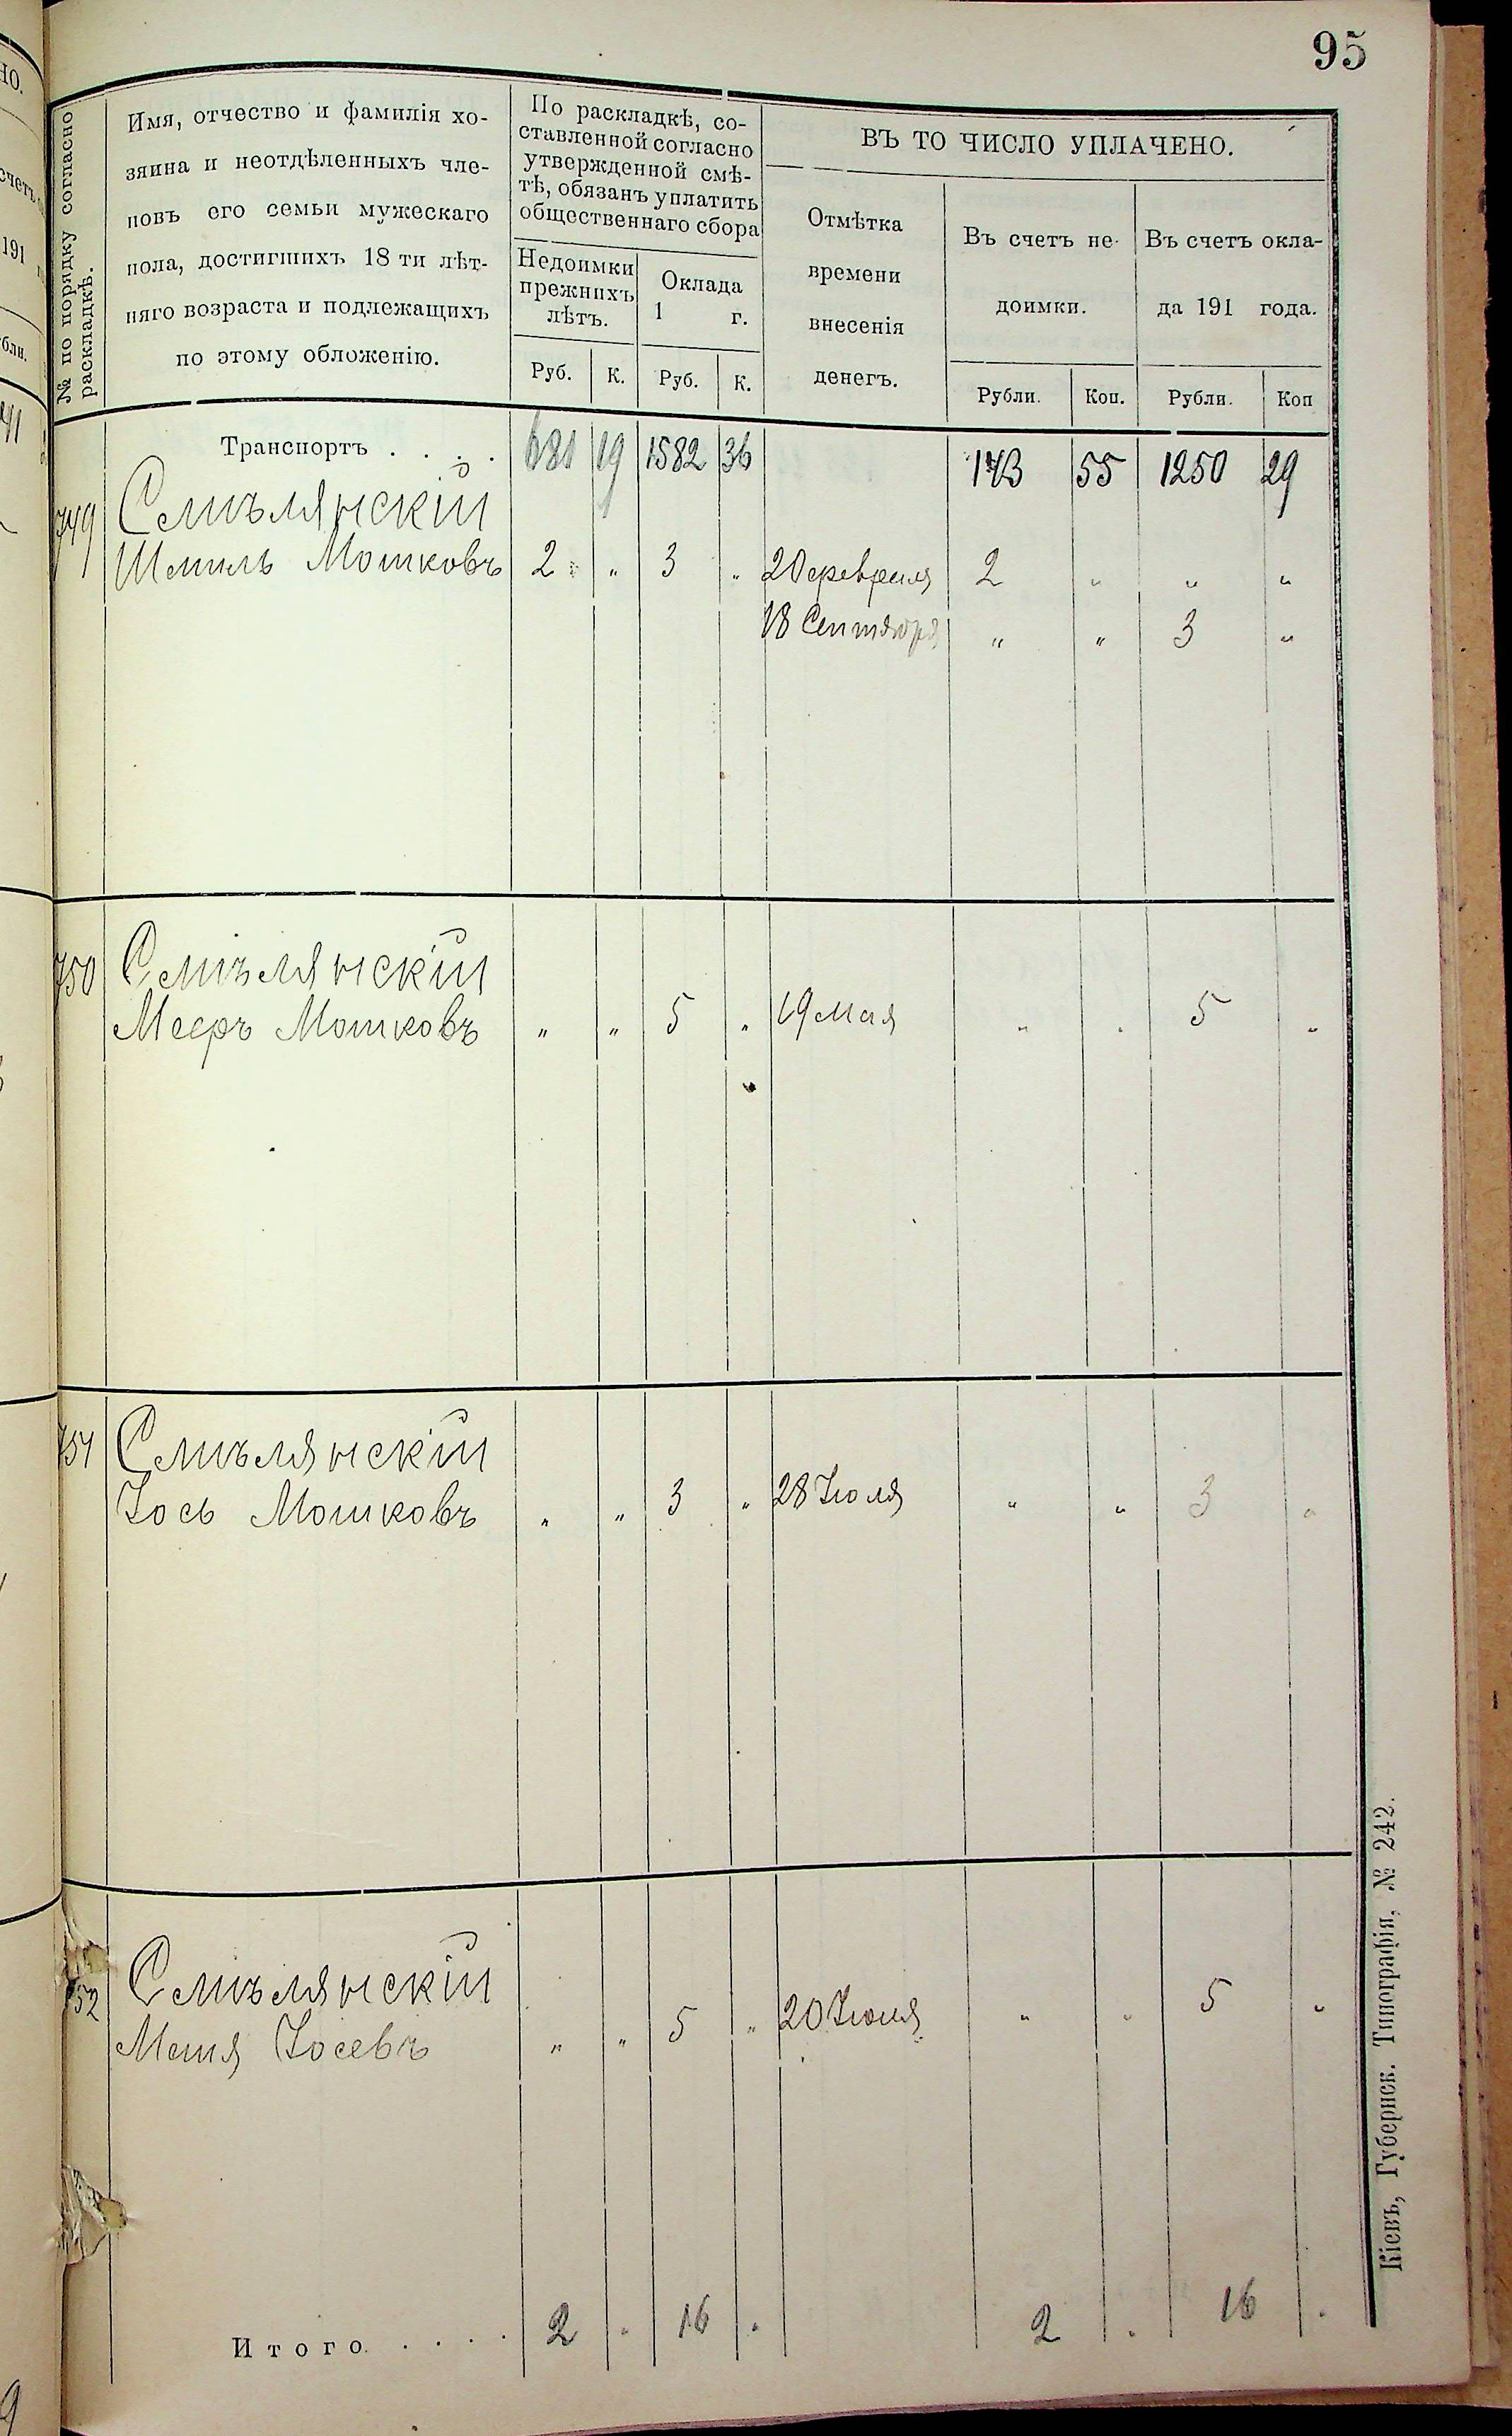 95
№ по порядку согласно
раскладкѣ.
Имя, отчество и фамилія хо-
зяина и неотдѣленныхъ чле-
новъ его семьи мужескаго
пола, достигшихъ 18 ти лѣт-
няго возраста и подлежащихъ
по этому обложенію.
По раскладкѣ, со-
ставленной согласно
утвержденной смѣ-
тѣ, обязанъ уплатить
общественнаго сбора
Недоимки
прежнихъ
лѣтъ.
Оклада
1 г.
Руб. К. Руб. К.
ВЪ ТО ЧИСЛО УПЛАЧЕНО.
Отмѣтка
времени
внесенія
денегъ.
Въ счетъ не-
доимки.
Въ счетъ окла-
да 191 года.
Рубли. Коп. Рубли. Коп
Транспортъ . . . . 681 19 1582 36 143 55 1250 29
749 Смѣлянскій
Шмиль Мошковъ 2 " 3 " 20 февраля 2 " " "
18 Сентября " " 3 "
750 Смѣлянскій
Мееръ Мошковъ " " 5 " 19 Мая " " 5 "
751 Смѣлянскій
Іось Мошковъ " " 3 " 28 Іюля " " 3 "
752 Смѣлянскій
Іосевъ " " 5 " 20 " " 5 "
Итого . . . . 2 " 16 " 2 " 16 "
Кіевъ, Губернск. Типографія, № 242.